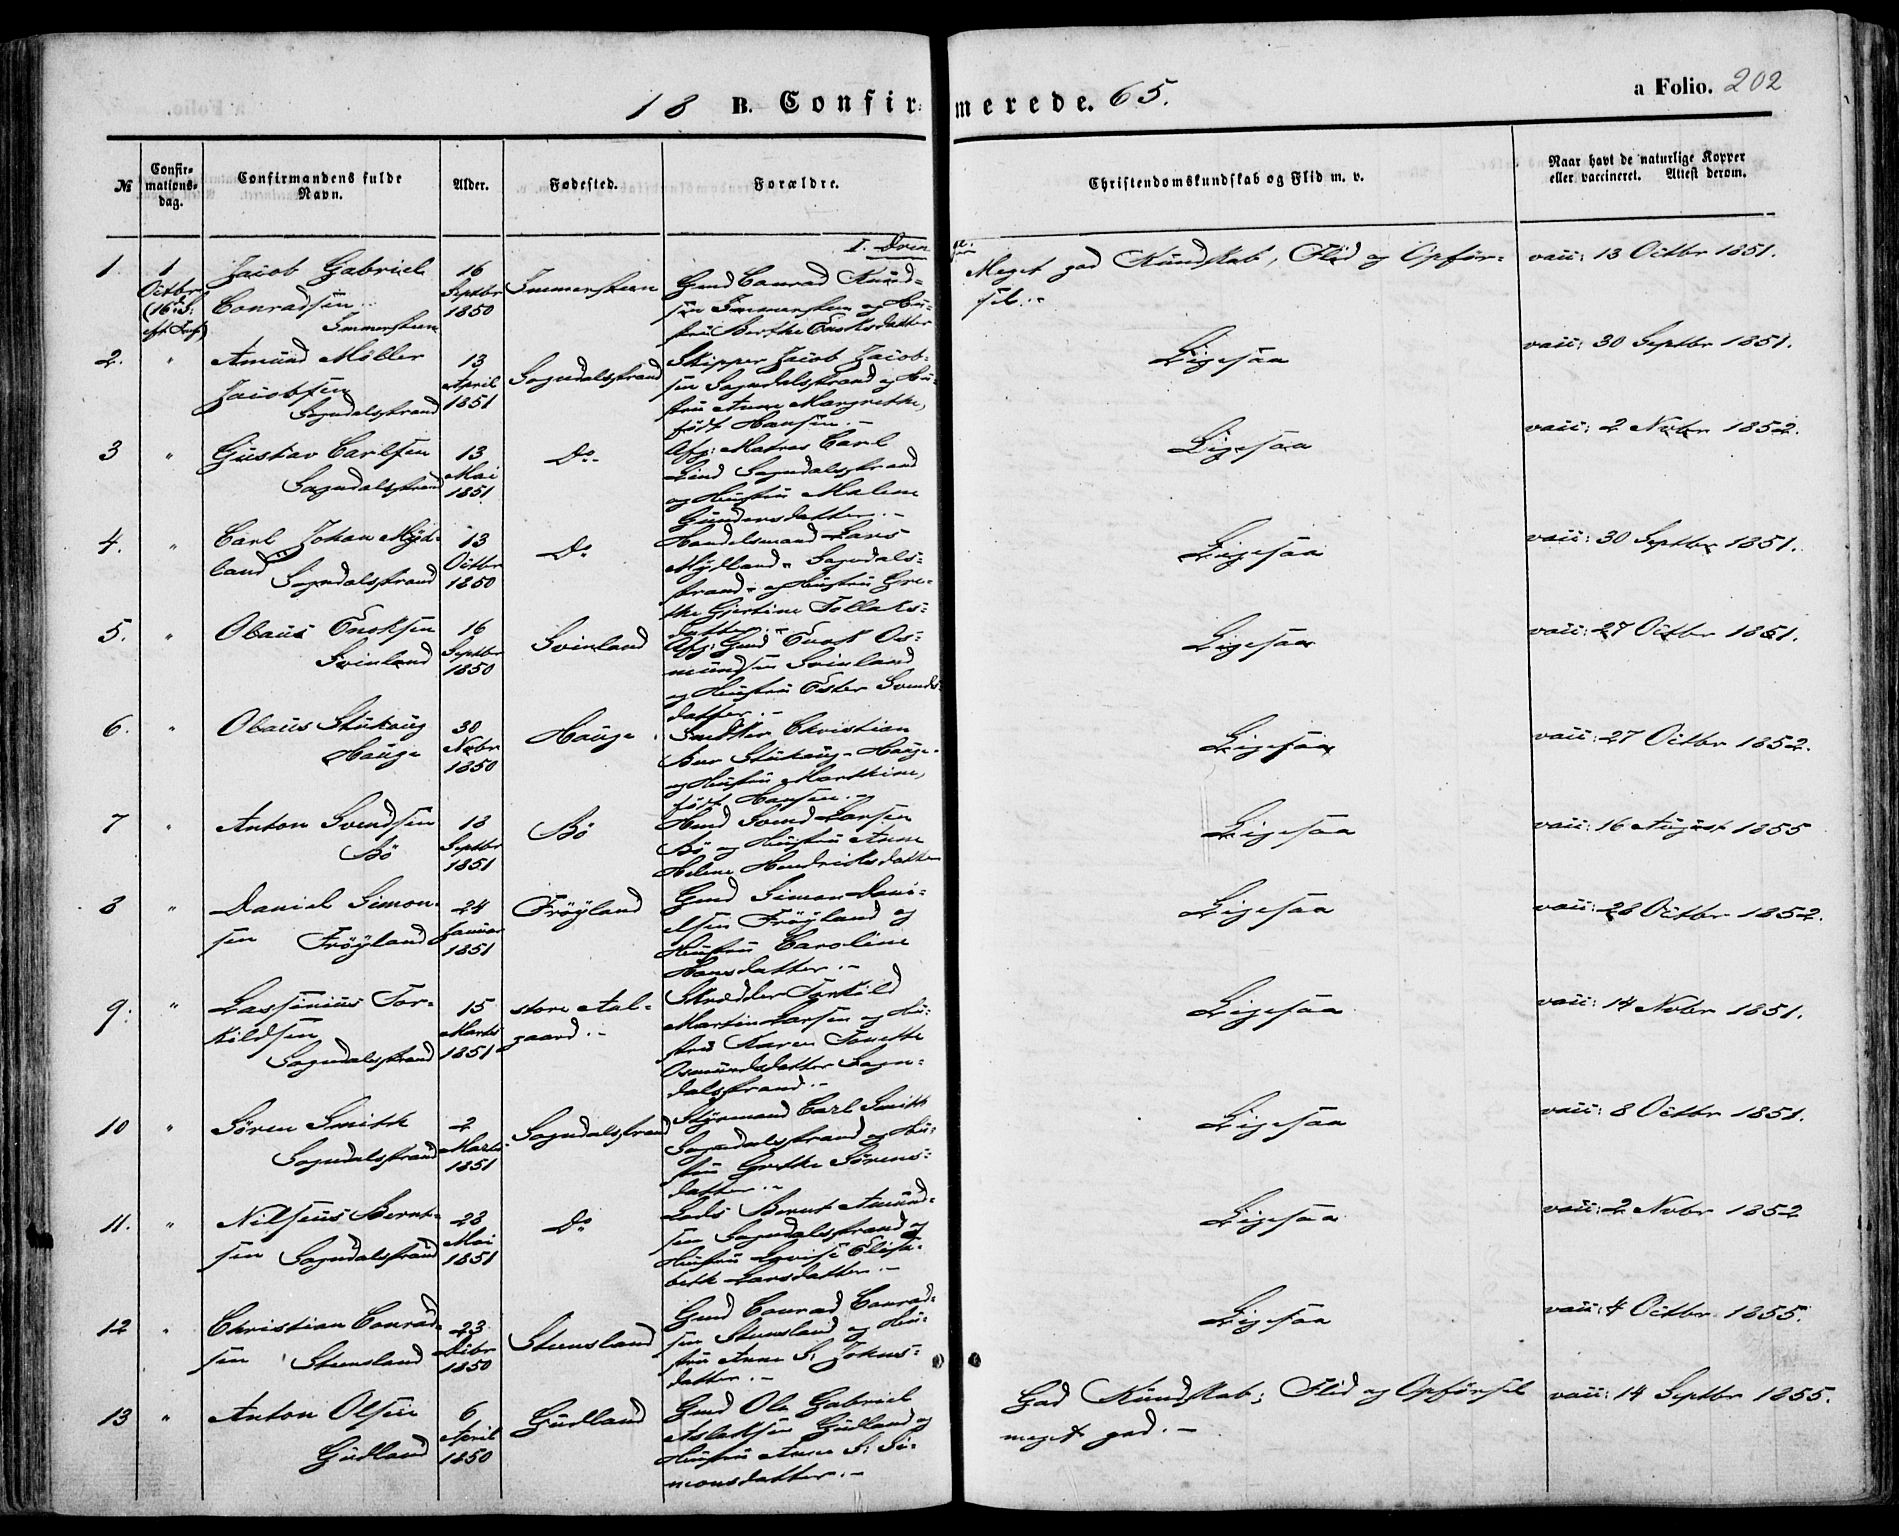 18 B. Confirmerede. 65.
a Folio. 202
№
Confirmations-dag.
Confirmandens fulde Navn.
Alder.
Fødested.
Forældre.
Christendomskundskab og Flid m. v.
Naar havt de naturlige Kopper eller vaccineret. Attest derom.
I. Drenge.
1.
1
Octbr
(16 S:
eft: Tref)
Jacob Gabriel
Conradsen
Immersteen
16
Septbr
1850
Immersteen
Gmd Conrad Knud-
sen Immersteen og Hu-
stru Berthe Enoksdatter
Meget god Kundskab, Flid og Opfør-
sel.
vacc: 13 Octbr 1851.
2.
"
Amund Møller
Jacobsen
Sogndalsstrand
13
April
1851
Sogndalsstrand
Skipper Jacob Jacob-
sen Sogndalsstrand og Hu-
stru Anne Margrethe,
født Hansen.
Ligesaa
vacc: 30 Septbr 1851.
3
"
Gustav Carlsen
Sogndalsstrand
13
Mai
1851
Do
Afg: Matros Carl
Lind Sogndalsstrand
og Hustru Malene
Gundersdatter.
Ligesaa
vacc: 2 Novbr 1852.
4.
"
Carl Johan Myd-
land
Sogndalsstrand
13
Octbr
1850
Do
Handelsmand Lars
Mydland Sogndals-
strand og Hustru Gre-
the Gjertine Tollaks-
datter.
Ligesaa
vacc: 30 Septbr 1851.
5.
"
Olaus Enoksen
Svinland
16
Septbr
1850
Svinland
Afg: Gmd Enok Os-
mundsen Svinland
og Hustru Ester Svends-
datter.
Ligesaa
vacc: 27 Octbr 1851.
6.
"
Olaus Stuhaug
Hauge
30
Novbr
1850
Hauge
Snedker Christian
Stuhaug Hauge
og Hustru Marthine,
født Hansen.
Ligesaa
vacc: 27 Octbr 1852.
7
"
Anton Svendsen
Bø
18
Septbr
1851
Bø
Hmd Svend Larsen
Bø og Hustru Anne
Helene Hendriksdatter
Ligesaa
vacc: 16 August 1855
8
"
Daniel Simon-
sen Frøyland
24
Januar
1851
Frøyland
Gmd Simon Dani-
elsen Frøyland og
Hustru Caroline
Hansdatter.
Ligesaa
vacc: 28 Octbr 1852.
9.
"
Lassenius Tor-
kildsen
Sogndalsstrand
15
Marts
1851
store Aal-
gaard.
Skrædder Torkild
Martin Larsen og Hu-
stru Karen Tonette
Osmundsdatter Sogn-
dalsstrand.
Ligesaa
vacc: 14 Novbr 1851.
10
"
Søren Smith
Sogndalsstrand
2
Marts
1851
Sogndalsstrand
Styrmand Carl Smith
Sogndalsstrand og Hu-
stru Grethe Sørens-
datter.
Ligesaa
vacc: 8 Octbr 1851.
11.
"
Nilseus Bernt-
sen Sogndalsstrand
28
Mai
1851
Do
Lods Bernt Amund-
sen Sogndalsstrand og
Hustru Lovise Elisa-
beth Larsdatter.
Ligesaa
vacc: 2 Novbr 1852
12
"
Christian Conrad-
sen Steensland
23
Decbr
1850
Steensland
Gmd Conrad Conrad-
sen Steensland og Hu-
stru Anne S: Johns-
datter.
Ligesaa
vacc: 4 Octbr 1855.
13
"
Anton Olsen
Gudland
6
April
1850
Gudland
Gmd Ole Gabriel
Aslaksen Gudland og
Hustru Anne S: Si-
monsdatter.
God Kundskab; Flid og Opførsel
meget god.
vacc: 14 Septbr 1855.